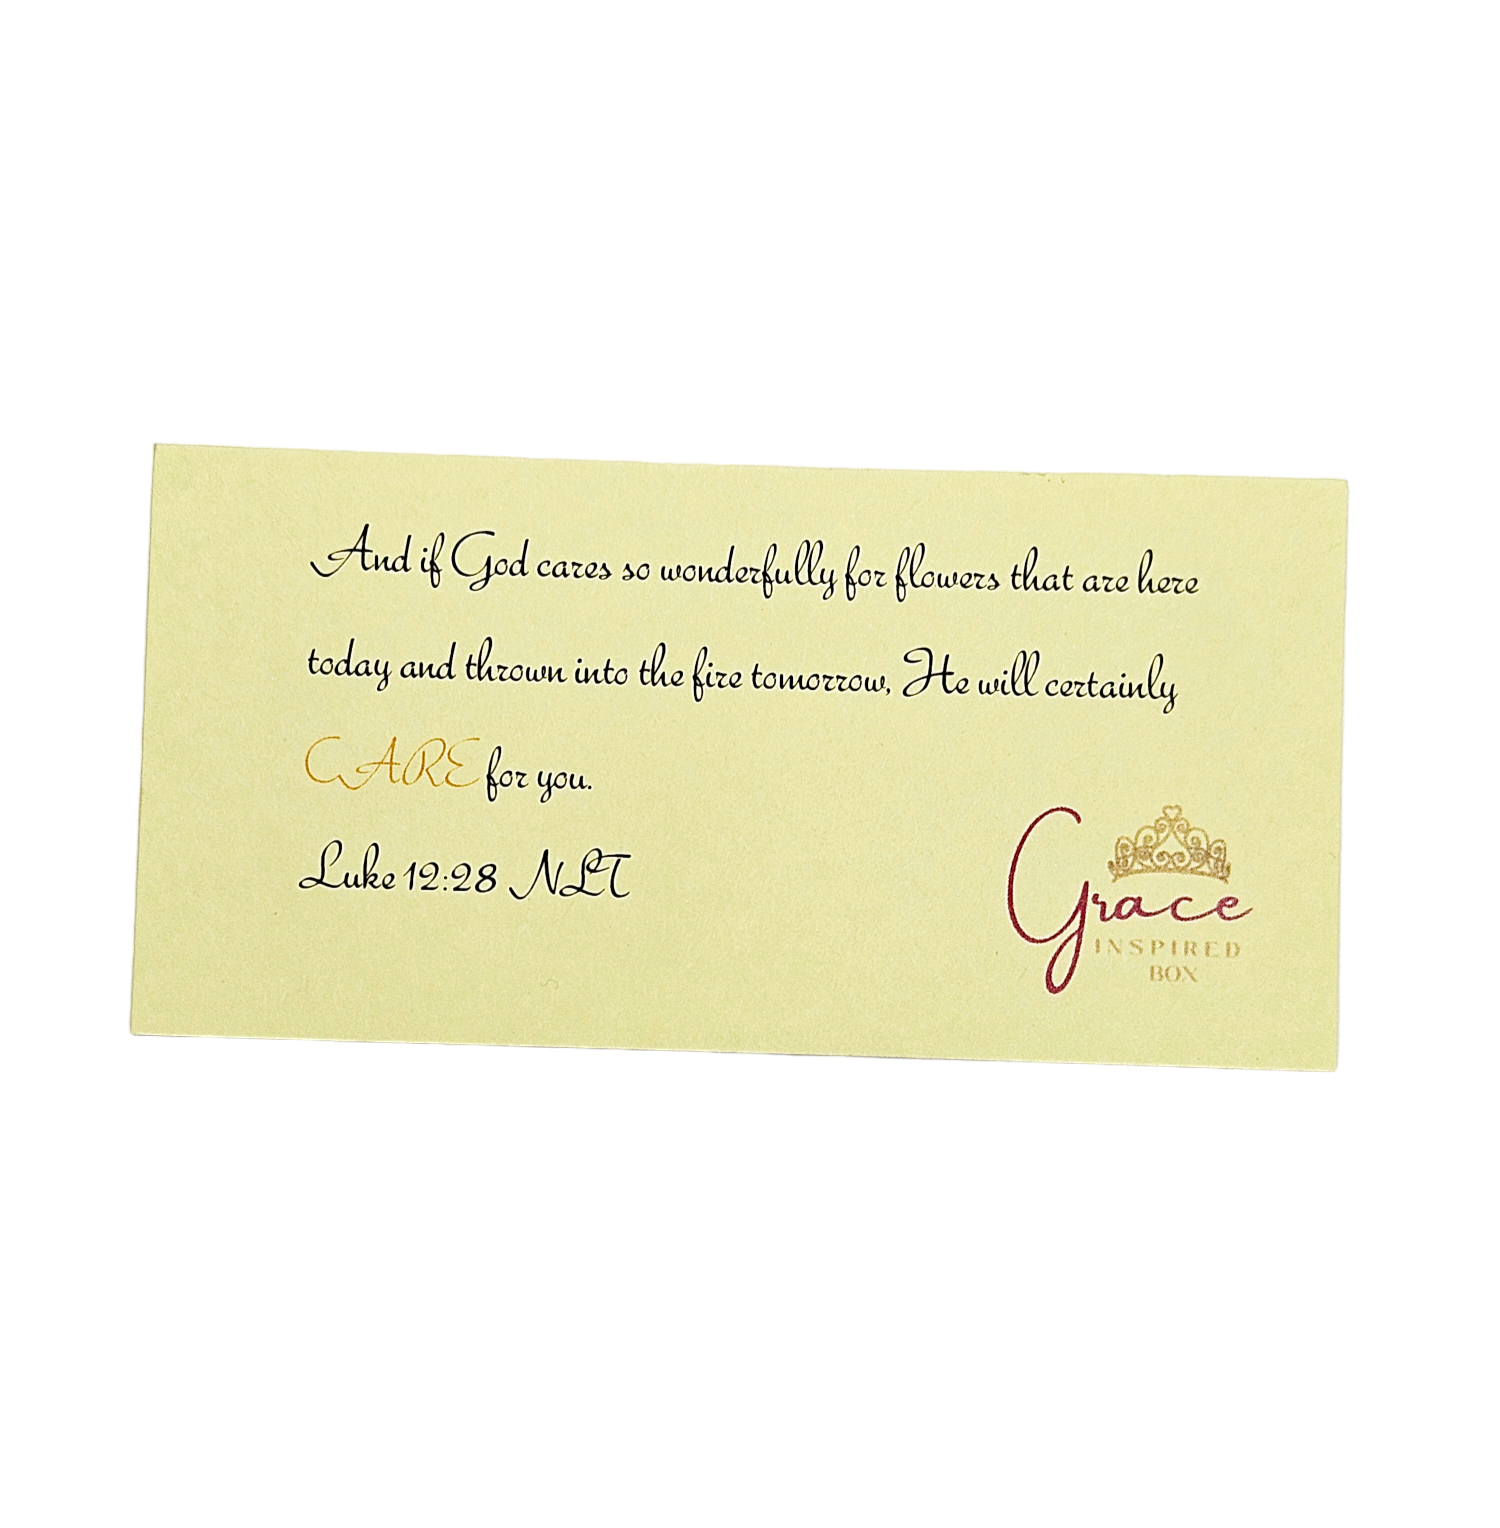 And if God cares so wonderfully for flowers that are here
today and thrown into the fire tomorrow, He will certainly
CARE for you.
Luke 12:28 NLT
Grace
INSPIRED
BOX